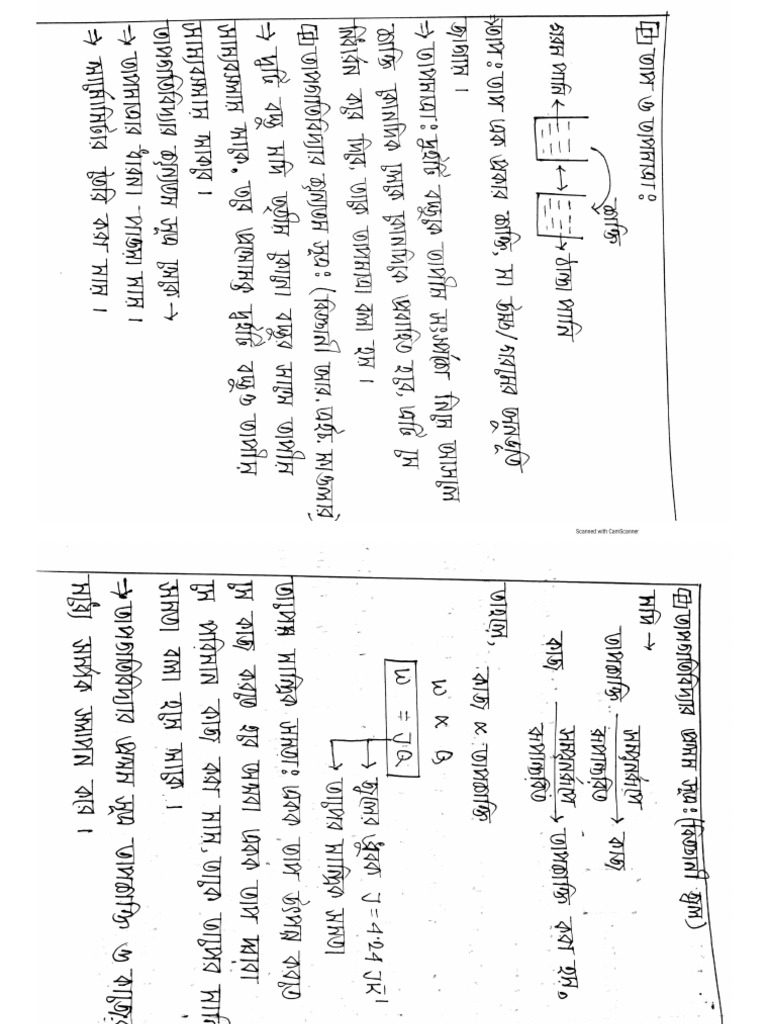 তাপ ও তাপমাত্রা:
শক্তি
গরম পানি ← → → ঠান্ডা পানি
তাপ: তাপ এক প্রকার শক্তি, যা ঠান্ডা/গরমের অনুভূতি
জাগায়।
⇒ তাপমাত্রা: দুইটি বস্তুকে তাপীয় সংস্পর্শে নিয়ে আসলে
শক্তি কোনদিক থেকে কোনদিকে প্রবাহিত হবে, এটি যে
নির্ধারন করে দেয়, তাকে তাপমাত্রা বলা হয়।
তাপগতিবিদ্যার শূন্যতম সূত্র: (বিজ্ঞানী আর. এইচ. ফাওলার)
⇒ দুটি বস্তু যদি তৃতীয় কোনো বস্তুর সাথে তাপীয়
সাম্যাবস্থায় থাকে, তবে প্রথমোক্ত দুইটি বস্তুও তাপীয়
সাম্যাবস্থায় থাকবে।
তাপগতিবিদ্যার শূন্যতম সূত্র থেকে →
→ তাপমাত্রার ধারনা পাওয়া যায়।
⇒ থার্মোমিটার তৈরি করা যায়।
Scanned with CamScanner
তাপগতিবিদ্যার প্রথম সূত্র: (বিজ্ঞানী জুল)
যদি →
তাপশক্তি সম্পূর্ণরূপে রূপান্তরিত → কাজ
কাজ সম্পূর্ণরূপে রূপান্তরিত → তাপশক্তি করা হয়।
তাহলে, কাজ ∝ তাপশক্তি
W ∝ Q
W = JQ
→ জুলের ধ্রুবক J = 4.24 JK⁻¹
→ তাপের যান্ত্রিক সমতা
তাপের যান্ত্রিক সমতা: একক তাপ উৎপন্ন করতে
যে কাজ করতে হয় অথবা একক তাপ দ্বারা
যে পরিমান কাজ করা যায়, তাকে তাপের যান্ত্রি
সমতা বলা হয়ে থাকে।
→ তাপগতিবিদ্যার প্রথম সূত্র তাপশক্তি ও কাজের
মধ্যে সম্পর্ক স্থাপন করে।